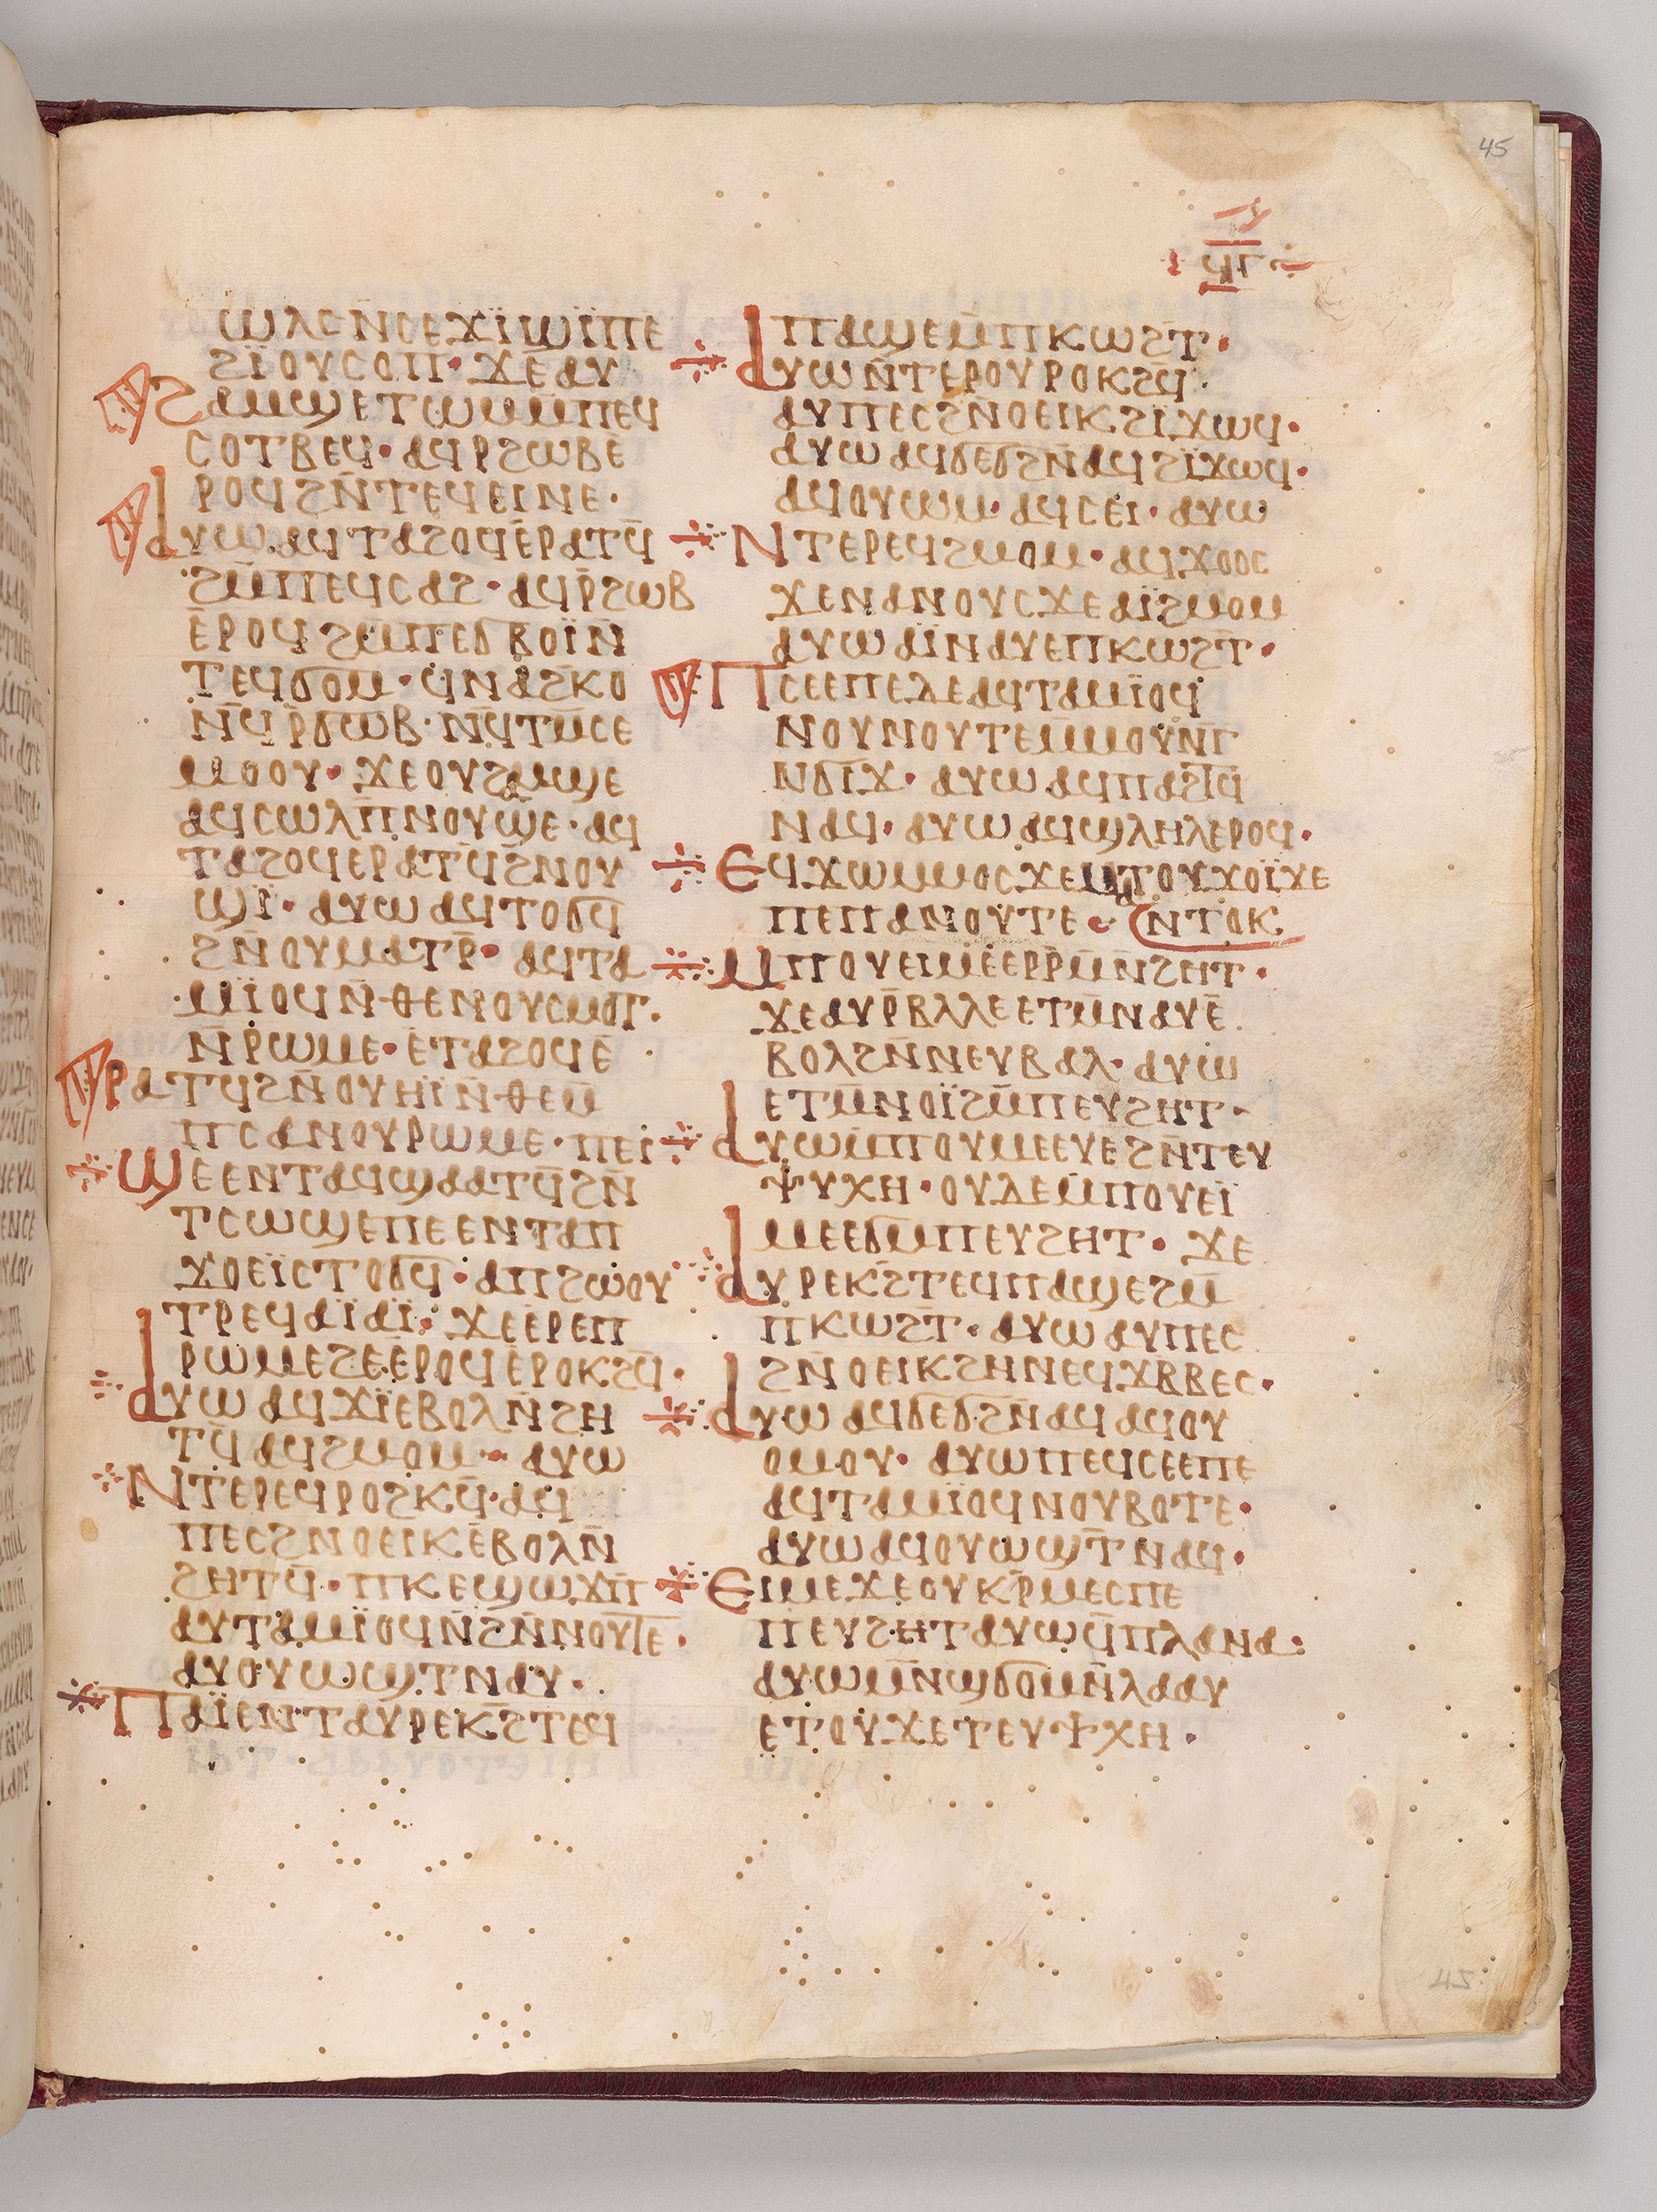 45
ϥⲅ
ⲱⲗⲥⲛ̄ⲥⲉϫⲓ̈ϣⲓ̈ⲡⲉ
ϩⲓ̈ⲟⲩⲥⲟⲡ· ϫⲉⲁⲩ
ϩⲁⲙϣⲉⲧⲱⲙⲙ̄ⲡⲉϥ
ⲥⲟⲧⲃⲉϥ· ⲁϥⲣϩⲱⲃⲉ
ⲣⲟϥϩⲛ̄ⲧⲉϥⲉⲓⲛⲉ·
ⲁⲩⲱ ⲁϥⲧⲁϩⲟϥⲉ̄ⲣⲁⲧϥ̄
ϩⲙ̄ⲡⲉϥⲥⲁϩ· ⲁϥⲣ̄ϩⲱⲃ
ⲉ̄ⲣⲟϥϩⲙ̄ⲡⲉϭⲃⲟⲓ̈ⲛ̄
ⲧⲉϥϭⲟⲙ· ϥⲛⲁϩⲕⲟ
ⲛ̄ϥⲣ̄ϭⲱⲃ· ⲛ̄ϥⲧⲙ̄ⲥⲉ
ⲙⲟⲟⲩ· ϫⲉⲟⲩϩⲁⲙϣⲉ
ⲁϥⲥⲱⲗⲡ̄ⲛⲟⲩϣⲉ· ⲁϥ
ⲧⲁϩⲟϥⲉⲣⲁⲧϥ̄ϩⲛⲟⲩ
ϣⲓ̈· ⲁⲩⲱ ⲁϥⲧⲟϭϥ̄
ϩⲛ̄ⲟⲩⲙⲁⲧⲣ̄· ⲁϥⲧⲁ
ⲙⲓ̈ⲟϥⲛ̄ⲑⲉⲛⲟⲩⲥⲙⲟⲧ·
ⲛ̄ⲣⲱⲙⲉ· ⲉ̄ⲧⲁϩⲟϥⲉ̄
ⲣⲁⲧϥϩⲛ̄ⲟⲩⲏⲓ̈ⲛ̄ⲑⲉⲙ̄
ⲡⲥⲁⲛⲟⲩⲣⲱⲙⲉ· ⲡⲉⲓ
ϣⲉⲉⲛⲧⲁϥϣⲁⲁⲧϥ̄ϩⲛ̄
ⲧⲥⲱϣⲉⲡⲉⲉⲛⲧⲁⲡ
ϫⲟⲉⲓ̈ⲥⲧⲟϭϥ̄· ⲁⲡϩⲱⲟⲩ
ⲧⲣⲉϥⲁⲓ̈ⲁⲓ̈: ϫⲉⲉ̄ⲣⲉⲡ
ⲣⲱⲙⲉϩⲉⲉ̄ⲣⲟϥⲉ̄ⲣⲟⲕϩϥ̄·
ⲁⲩⲱ ⲁϥϫⲓ̈ⲉⲃⲟⲗⲛ̄ϩⲏ
ⲧϥ̄ ⲁϥϩⲙⲟⲙ· ⲁⲩⲱ
ⲛⲧⲉⲣⲉϥⲣⲟϩⲕϥ̄· ⲁϥ
ⲡⲉⲥϩⲛⲟⲉⲓⲕⲉ̄ⲃⲟⲗⲛ̄
ϩⲏⲧϥ̄· ⲡⲕⲉϣⲱϫⲡ̄
ⲁⲩⲧⲁⲙⲓ̈ⲟϥⲛ̄ϩⲛ̄ⲛⲟⲩⲧⲉ·
ⲁⲩⲟⲩⲱϣⲧⲛⲁⲩ·
ⲡⲁⲓ̈ⲉⲛⲧⲁⲩⲣⲉⲕϩⲧⲉϥ
ⲡⲁϣⲉⲙ̄ⲡⲕⲱϩⲧ̄·
ⲁⲩⲱⲛ̄ⲧⲉⲣⲟⲩⲣⲟⲕϩϥ̄·
ⲁⲩⲡⲉⲥϩⲛ̄ⲟⲉⲓⲕϩⲓϫⲱϥ·
ⲁⲩⲱ ⲁϥϭⲉϭϩⲛ̄ⲁϥϩⲓ̈ϫⲱϥ·
ⲁϥⲟⲩⲱⲙ· ⲁϥⲥⲉⲓ· ⲁⲩⲱ
ⲛⲧⲉⲣⲉϥϩⲙⲟⲙ· ⲁϥϫⲟⲟⲥ
ϫⲉⲛⲁⲛⲟⲩⲥϫⲉⲁⲓ̈ϩⲙⲟⲙ
ⲁⲩⲱ ⲁⲓ̈ⲛⲁⲩⲉⲡⲕⲱϩⲧ̄·
ⲡⲥⲉⲉⲡⲉⲇⲉⲁϥⲧⲁⲙⲓ̈ⲟϥ
ⲛⲟⲩⲛⲟⲩⲧⲉⲙ̄ⲙⲟⲩⲛ̄ⲅ
ⲛϭⲓϫ· ⲁⲩⲱ ⲁϥⲡⲁϩⲧϥ̄
ⲛⲁϥ· ⲁⲩⲱ ⲁϥϣⲗⲏⲗⲉⲣⲟϥ·
ⲉϥϫⲱⲙⲙⲟⲥϫⲉⲙⲁⲧⲟⲩϫⲟⲓ̈ϫⲉ
ⲡⲉⲡⲁⲛⲟⲩⲧⲉ ⲛ̄ⲧⲟⲕ
ⲙⲡⲟⲩⲉⲓⲙⲉⲉⲣⲣⲙ̄ⲛ̄ϩⲏⲧ·
ϫⲉⲁⲩⲣ̄ⲃⲗⲗⲉⲉⲧⲙ̄ⲛⲁⲩⲉ̄
ⲃⲟⲗϩⲛ̄ⲛⲉⲩⲃⲁⲗ· ⲁⲩⲱ
ⲉⲧⲙ̄ⲛⲟⲓ̈ϩⲙ̄ⲡⲉⲩϩⲏⲧ·
ⲁⲩⲱⲙ̄ⲡⲟⲩⲙⲉⲉⲩⲉϩⲛ̄ⲧⲉⲩ
ⲯⲩⲭⲏ· ⲟⲩⲇⲉⲙ̄ⲡⲟⲩⲉⲓ̈
ⲙⲉⲉϭⲙ̄ⲡⲉⲩϩⲏⲧ· ϫⲉ
ⲁⲩⲣⲉⲕϩ̄ⲧⲉϥⲡⲁϣⲉϩⲙ̄
ⲡⲕⲱϩⲧ̄· ⲁⲩⲱ ⲁⲩⲡⲉⲥ
ϩⲛ̄ⲟⲉⲓⲕϩⲏⲛⲉϥϫⲃⲃⲉⲥ·
ⲁⲩⲱ ⲁϥϭⲉϭϩⲛ̄ⲁϥ ⲁϥⲟⲩ
ⲟⲙⲟⲩ· ⲁⲩⲱⲡⲉϥⲥⲉⲉⲡⲉ
ⲁϥⲧⲁⲙⲓ̈ⲟϥⲛⲟⲩⲃⲟⲧⲉ·
ⲁⲩⲱ ⲁϥⲟⲩⲱϣⲧ̄ⲛⲁϥ·
ⲉⲓⲙⲉϫⲉⲟⲩⲕⲣ̄ⲙⲉⲥⲡⲉ
ⲡⲉⲩϩⲏⲧⲁⲩⲱϥ̄ⲡⲗⲁⲛⲁ:
ⲁⲩⲱⲙ̄ⲛ̄ϣϭⲟⲙⲛ̄ⲗⲁⲁⲩ
ⲉⲧⲟⲩϫⲉⲧⲉⲩⲯⲭⲏ·